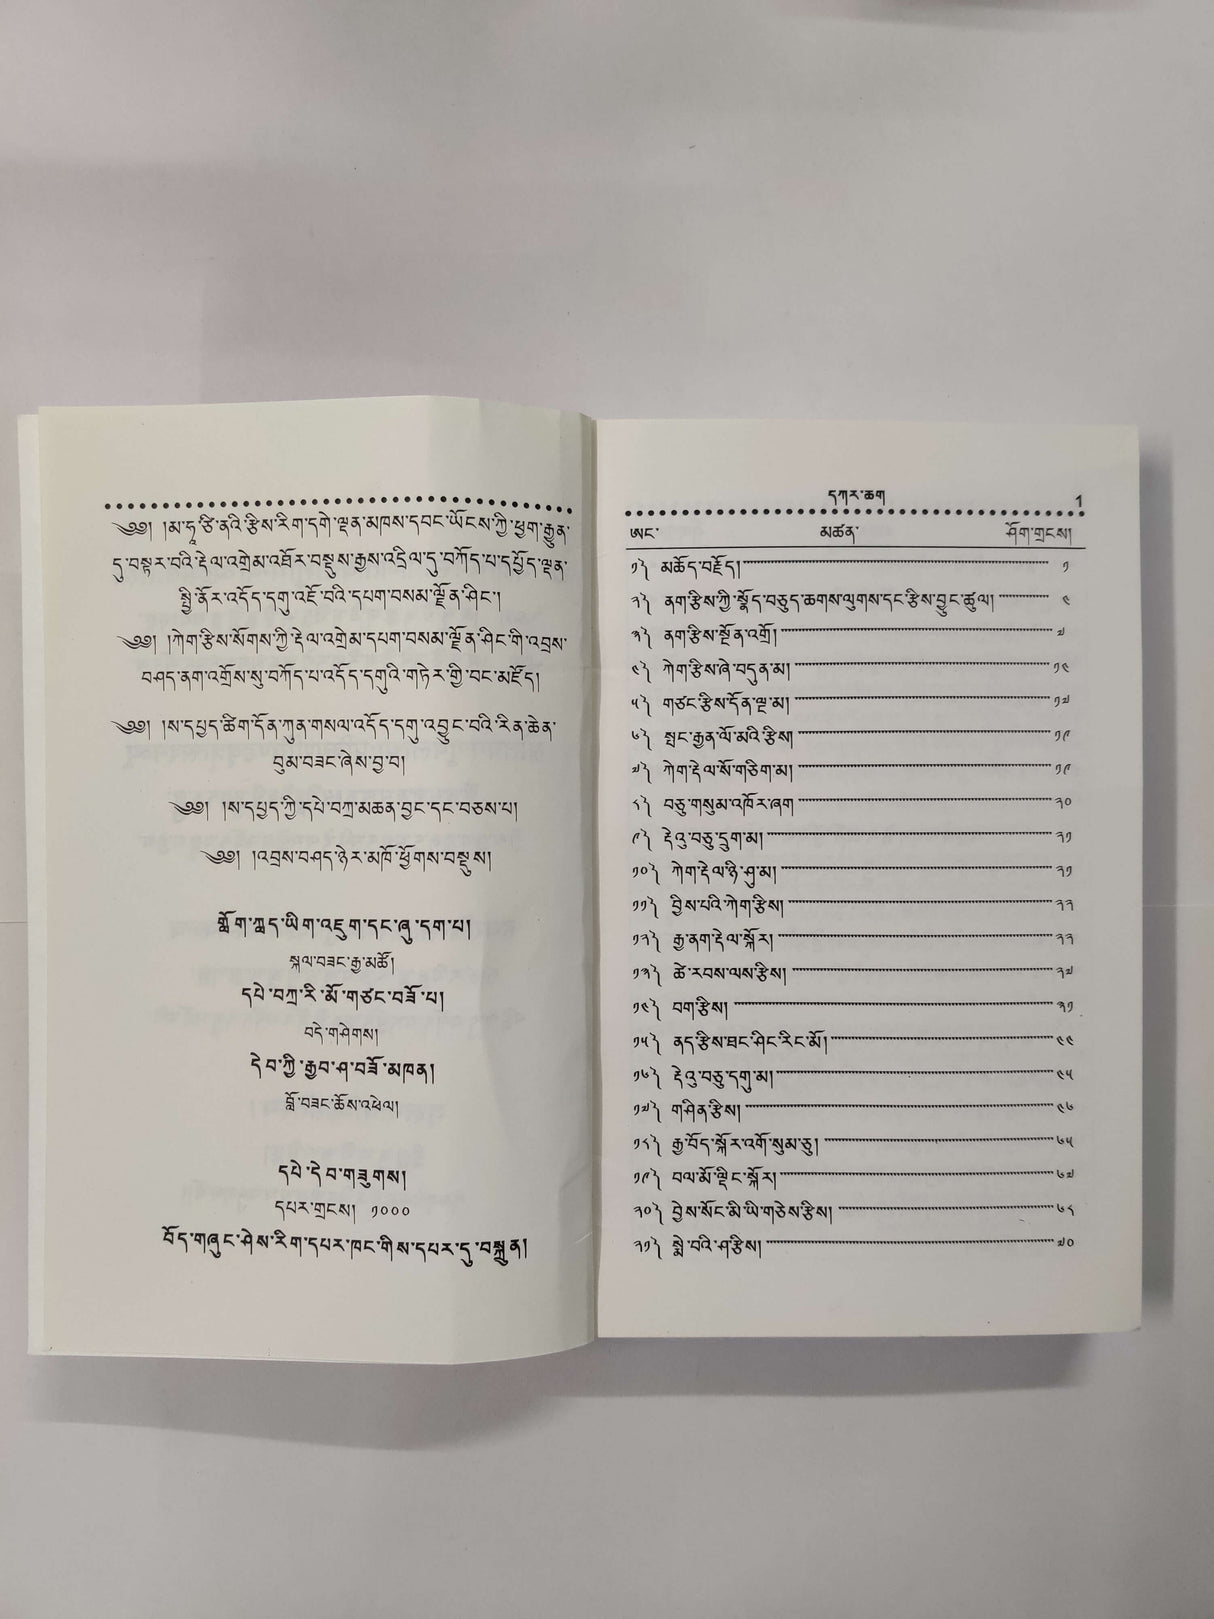 ༄༅། །མ་ཧཱ་ཙི་ནའི་རྩིས་རིག་དགེ་ལྡན་མཁས་དབང་ཡོངས་ཀྱི་ཕྱག་རྒྱུན་
དུ་བསྟར་བའི་རྡེལ་འགྲེམ་འཐོར་བསྡུས་རྒྱས་འདྲིལ་དུ་བཀོད་པ་དཔྱོད་ལྡན་
སྤྱི་ནོར་འདོད་དགུ་འཇོ་བའི་དཔག་བསམ་ལྗོན་ཤིང་།
༄༅། །ཀེག་རྩིས་སོགས་ཀྱི་རྡེལ་འགྲེམ་དཔག་བསམ་ལྗོན་ཤིང་གི་འབྲས་
བཤད་ནག་འགྲོས་སུ་བཀོད་པ་འདོད་དགུའི་གཏེར་གྱི་བང་མཛོད།
༄༅། །ས་དཔྱད་ཚིག་དོན་ཀུན་གསལ་འདོད་དགུ་འབྱུང་བའི་རིན་ཆེན་
བུམ་བཟང་ཞེས་བྱ་བ།
༄༅། །ས་དཔྱད་ཀྱི་དཔེ་བཀྲ་མཆན་བྱང་དང་བཅས་པ།
༄༅། །འབྲས་བཤད་ཉེར་མཁོ་ཕྱོགས་བསྡུས།
གློག་ཀླད་ཡིག་འཇུག་དང་ཞུ་དག་པ།
སྐལ་བཟང་རྒྱ་མཚོ།
དཔེ་བཀྲ་རི་མོ་གཙང་བཟོ་པ།
བདེ་གཤེགས།
དེབ་ཀྱི་རྒྱབ་ཤ་བཟོ་མཁན།
བློ་བཟང་ཆོས་འཕེལ།
དཔེ་དེབ་གཟུགས།
དཔར་གྲངས། ༡༠༠༠
བོད་གཞུང་ཤེས་རིག་དཔར་ཁང་གིས་དཔར་དུ་བསྐྲུན།
དཀར་ཆག 1
ཨང་ མཚན་ ཤོག་གྲངས།
༡༽ མཆོད་བརྗོད། ༡
༢༽ ནག་རྩིས་ཀྱི་སྣོད་བཅུད་ཆགས་ལུགས་དང་རྩིས་བྱུང་ཚུལ། ༤
༣༽ ནག་རྩིས་སྔོན་འགྲོ། ༧
༤༽ ཀེག་རྩིས་ཞེ་བདུན་མ། ༡༤
༥༽ གཙང་རྩིས་དོན་ལྔ་མ། ༡༧
༦༽ སྤང་རྒྱན་ལོ་མའི་རྩིས། ༡༩
༧༽ ཀེག་རྡེལ་སོ་གཅིག་མ། ༡༩
༨༽ བཅུ་གསུམ་འཁོར་ཞག ༢༠
༩༽ རྡེའུ་བཅུ་དྲུག་མ། ༢༡
༡༠༽ ཀེག་རྡེལ་ཉི་ཤུ་མ། ༢༡
༡༡༽ བྱིས་པའི་ཀེག་རྩིས། ༢༢
༡༢༽ རྒྱ་ནག་རྡེལ་སྐོར། ༢༢
༡༣༽ ཚེ་རབས་ལས་རྩིས། ༢༧
༡༤༽ བག་རྩིས། ༣༡
༡༥༽ ནད་རྩིས་ཐང་ཤིང་རིང་མོ། ༤༤
༡༦༽ རྡེའུ་བཅུ་དགུ་མ། ༤༥
༡༧༽ གཤིན་རྩིས། ༤༦
༡༨༽ རྒྱ་བོད་སྐོར་འགོ་སུམ་ཅུ། ༦༥
༡༩༽ བལ་མོ་ལྡིང་སྐོར། ༦༧
༢༠༽ བྱེས་སོང་མི་ཡི་གཅེས་རྩིས། ༦༨
༢༡༽ སྨེ་བའི་ཤ་རྩིས། ༧༠